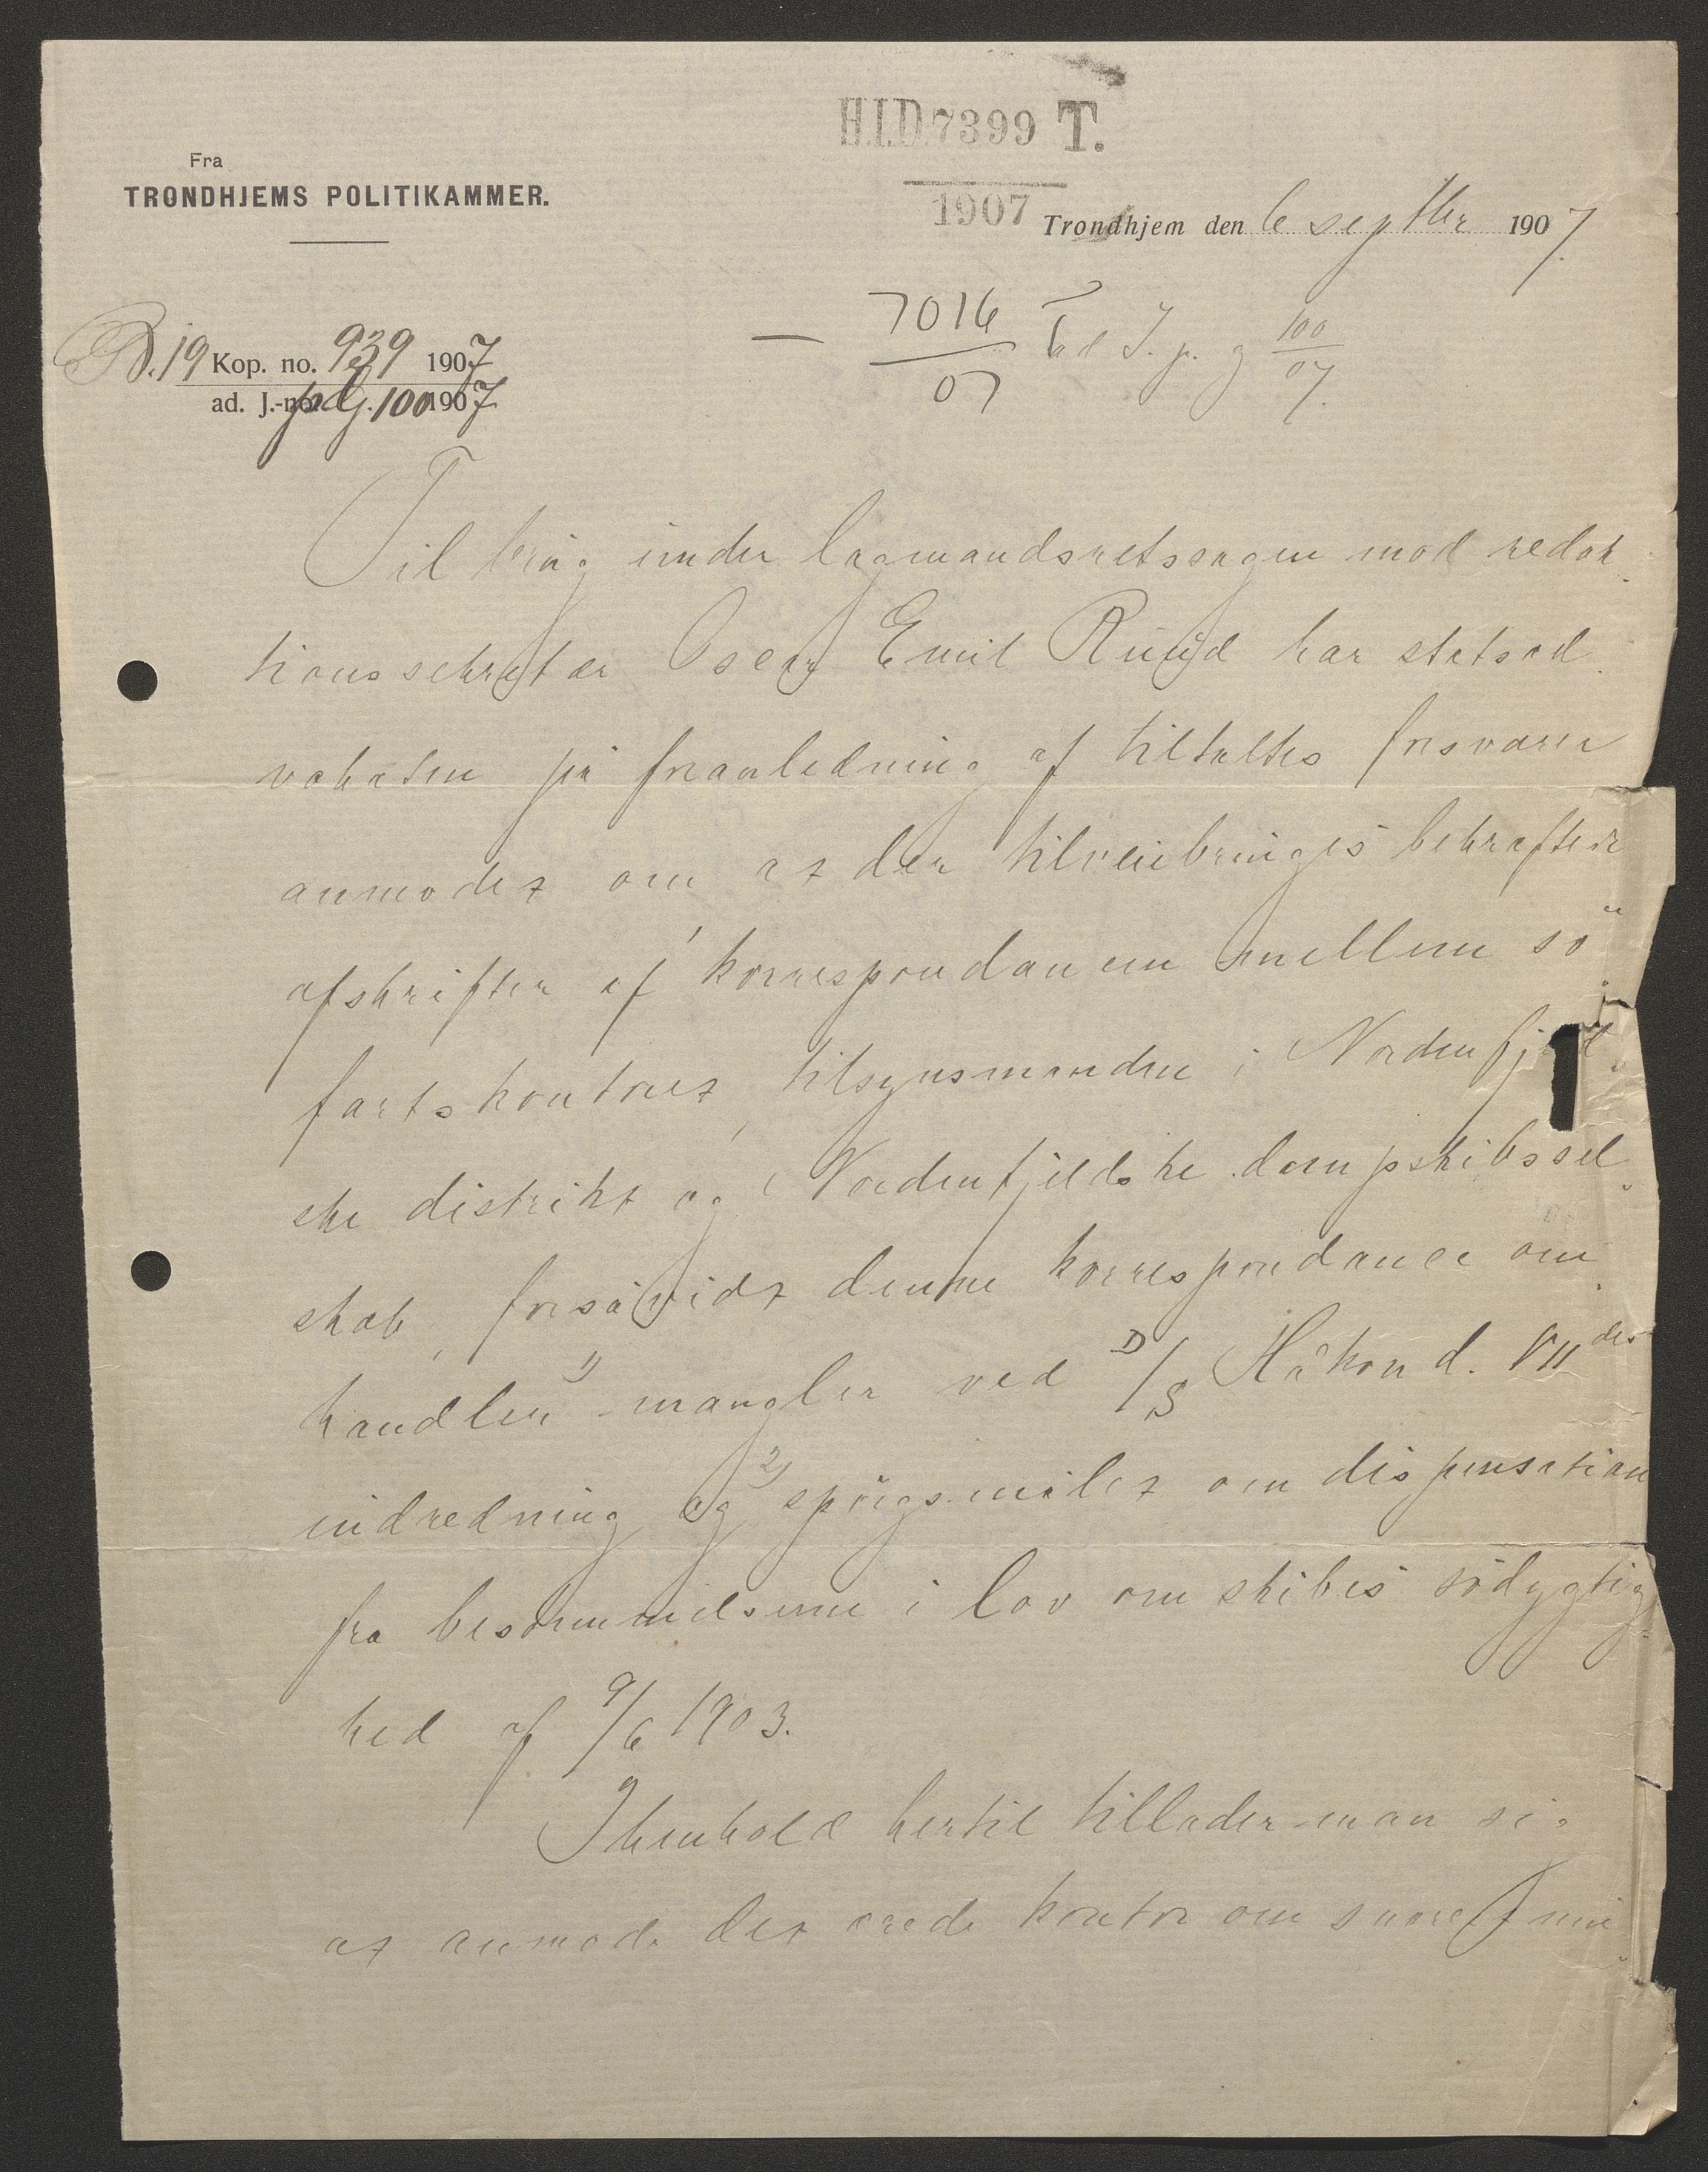 H.I.D 7399 T.
1907
Fra
TRONDHJEMS POLITIKAMMER.
Trondhjem den 6 septbr 1907.
7016
07
Til J. p. g 100
07.
P.19 Kop. no. 939 1907
ad. J.-no. pdg. 100 1907
Til brug under lagmandsretssagen mod redak
tionssekretær Oscar Emil Ruud har statsad
vokaten på foranledning af tiltaltes forsvarer
anmodet om at der tilveiebringes bekræftede
afskrifter af korrespondancen mellem sö
fartskontoret, tilsynsmanden i Nordenfjeld
ske distrikt og Nordenfjeldske dampskibssel
skab, forsåvidt denne korrespondance om
handler 1) mangler ved D/S Håkon d. VIIdes
indredning og 2) spörgsmålet om dispensation
fra bestemmelserne i lov om skibes södygtig
hed af 9/6 1903.
I henhold hertil tillader man sig
at anmode det ærede kontor om snarest mu